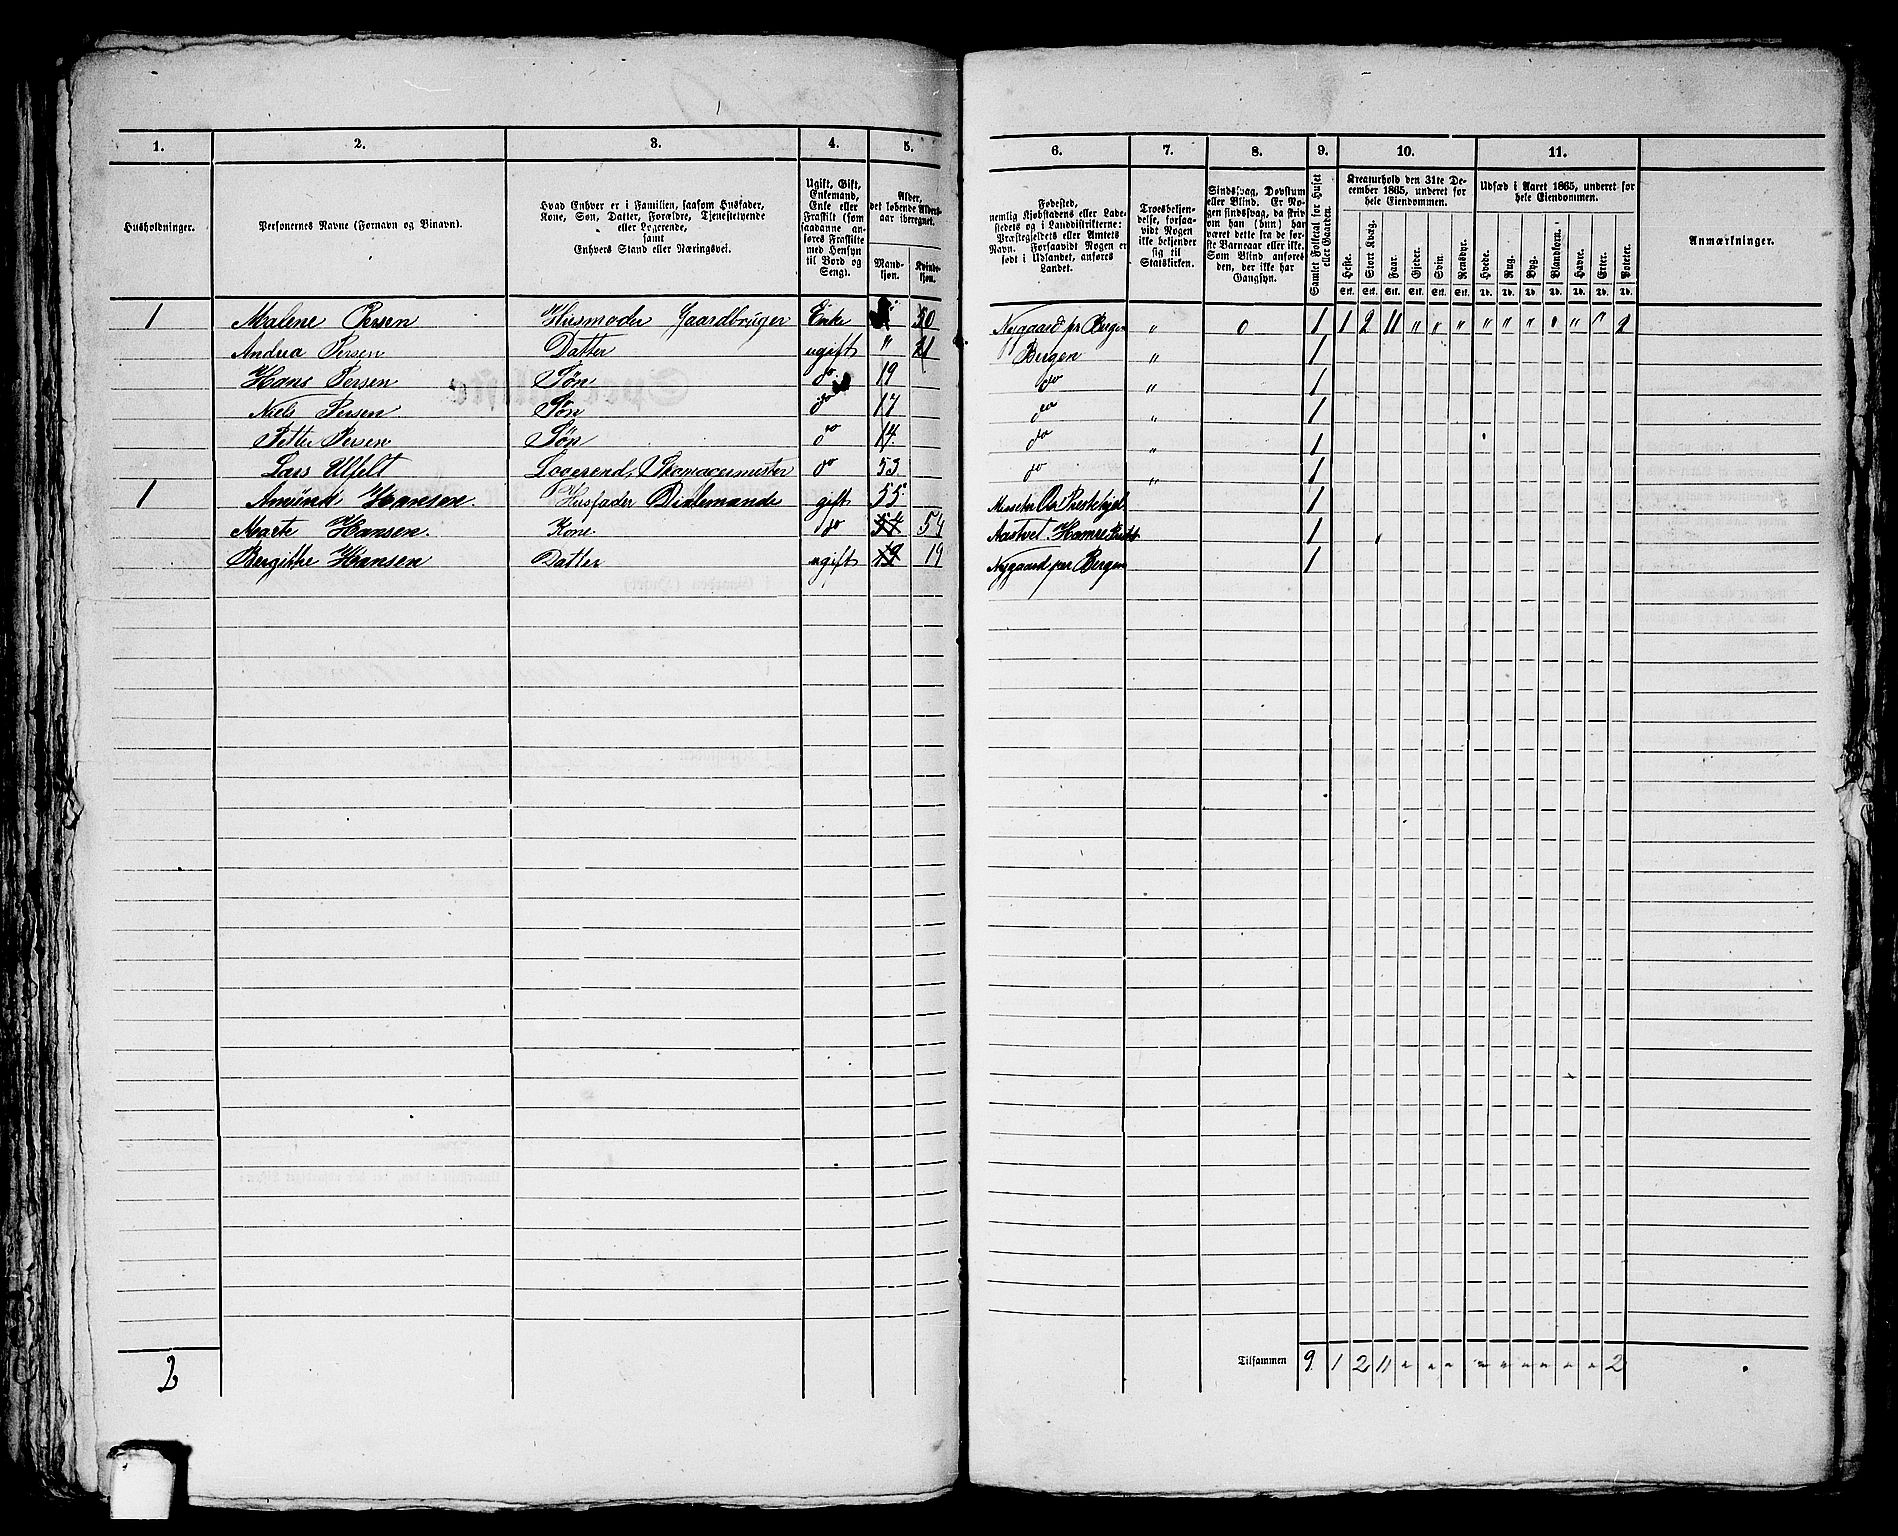 1. 2. 3. 4. 5. 6. 7. 8. 9. 10. 11.
Husholdninger.
Personernes Navne (Fornavn og Tilnavn).
Hvad Enhver er i Familien, saasom Husfader,
Kone, Søn, Datter, Forældre, Tjenestetyende
eller Logerende,
samt
Enhvers Stand eller Næringsvei.
Ugift, Gift,
Enkemand,
Enke eller
Fraskilt (som
saadanne an-
føres Fraskilte
med Hensyn
til Bord og
Seng).
Alder,
det løbende Alders-
aar iberegnet.
Mand-
kjøn.
Kvinde-
kjøn.
Fødested,
nemlig Kjøbstadens eller Lade-
stedets og i Landdistrikterne:
Præstegjeldets eller Amtets
Navn. Forsaavidt Nogen er
født i Udlandet, anføres
Landet.
Troesbekjen-
delse, forsaa-
vidt Nogen
ikke bekjender
sig til
Statskirken.
Sindssvag, Døvstum
eller Blind. Er No-
gen sindssvag, da hvor-
vidt han (hun) har
været dette fra de før-
ste Barneaar eller ikke.
Som Blind anføres
den, der ikke har
Gangsyn.
Samlet Folketal for Huset
eller Gaarden.
Kreaturhold den 31te De-
cember 1865, underet for
hele Eiendommen.
Heste. Stort Kvæg. Faar. Gjeder. Svin. Rensdyr.
Stk. Stk. Stk. Stk. Stk. Stk.
Udsæd i Aaret 1865, underet for
hele Eiendommen.
Hvede. Rug. Byg. Blandkorn. Havre. Erter. Poteter.
Td. Td. Td. Td. Td. Td. Td.
Anmærkninger.
1 Malene Persen Husmoder Gaardbruger Enke 50 Nygaard pr Bergen " 0 1 1 2 11 " " " " " " " " " 2
Andrea Persen Datter ugift " 21 Bergen " 1
Hans Persen Søn do 19 do " 1
Niels Persen Søn do 17 do " 1
Petter Persen Søn do 14 do " 1
Lars Ulfelt Logerend, Skomagermester do 53 do " 1
1 Amünd Hansen. Husfader gift 55 1
Marte Hansen. Kone do 54 54 Hamre 1
Bergithe Hansen Datter ugift 19 19 Nygaard per Bergen 1
2
Tilsammen 9. 1 2 11 " " " " " " " " " 2